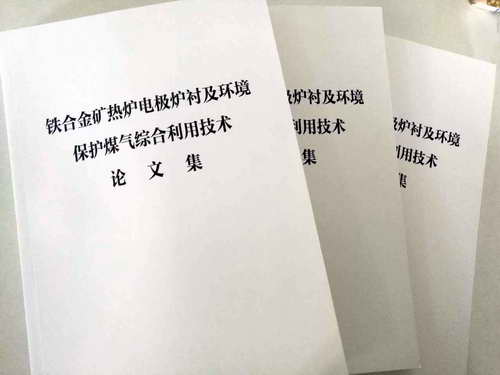 铁合金矿热炉电极炉衬及环境
保护煤气综合利用技术
论文集
极炉衬及环境
利用技术
集
炉衬及环境
利用技术
集